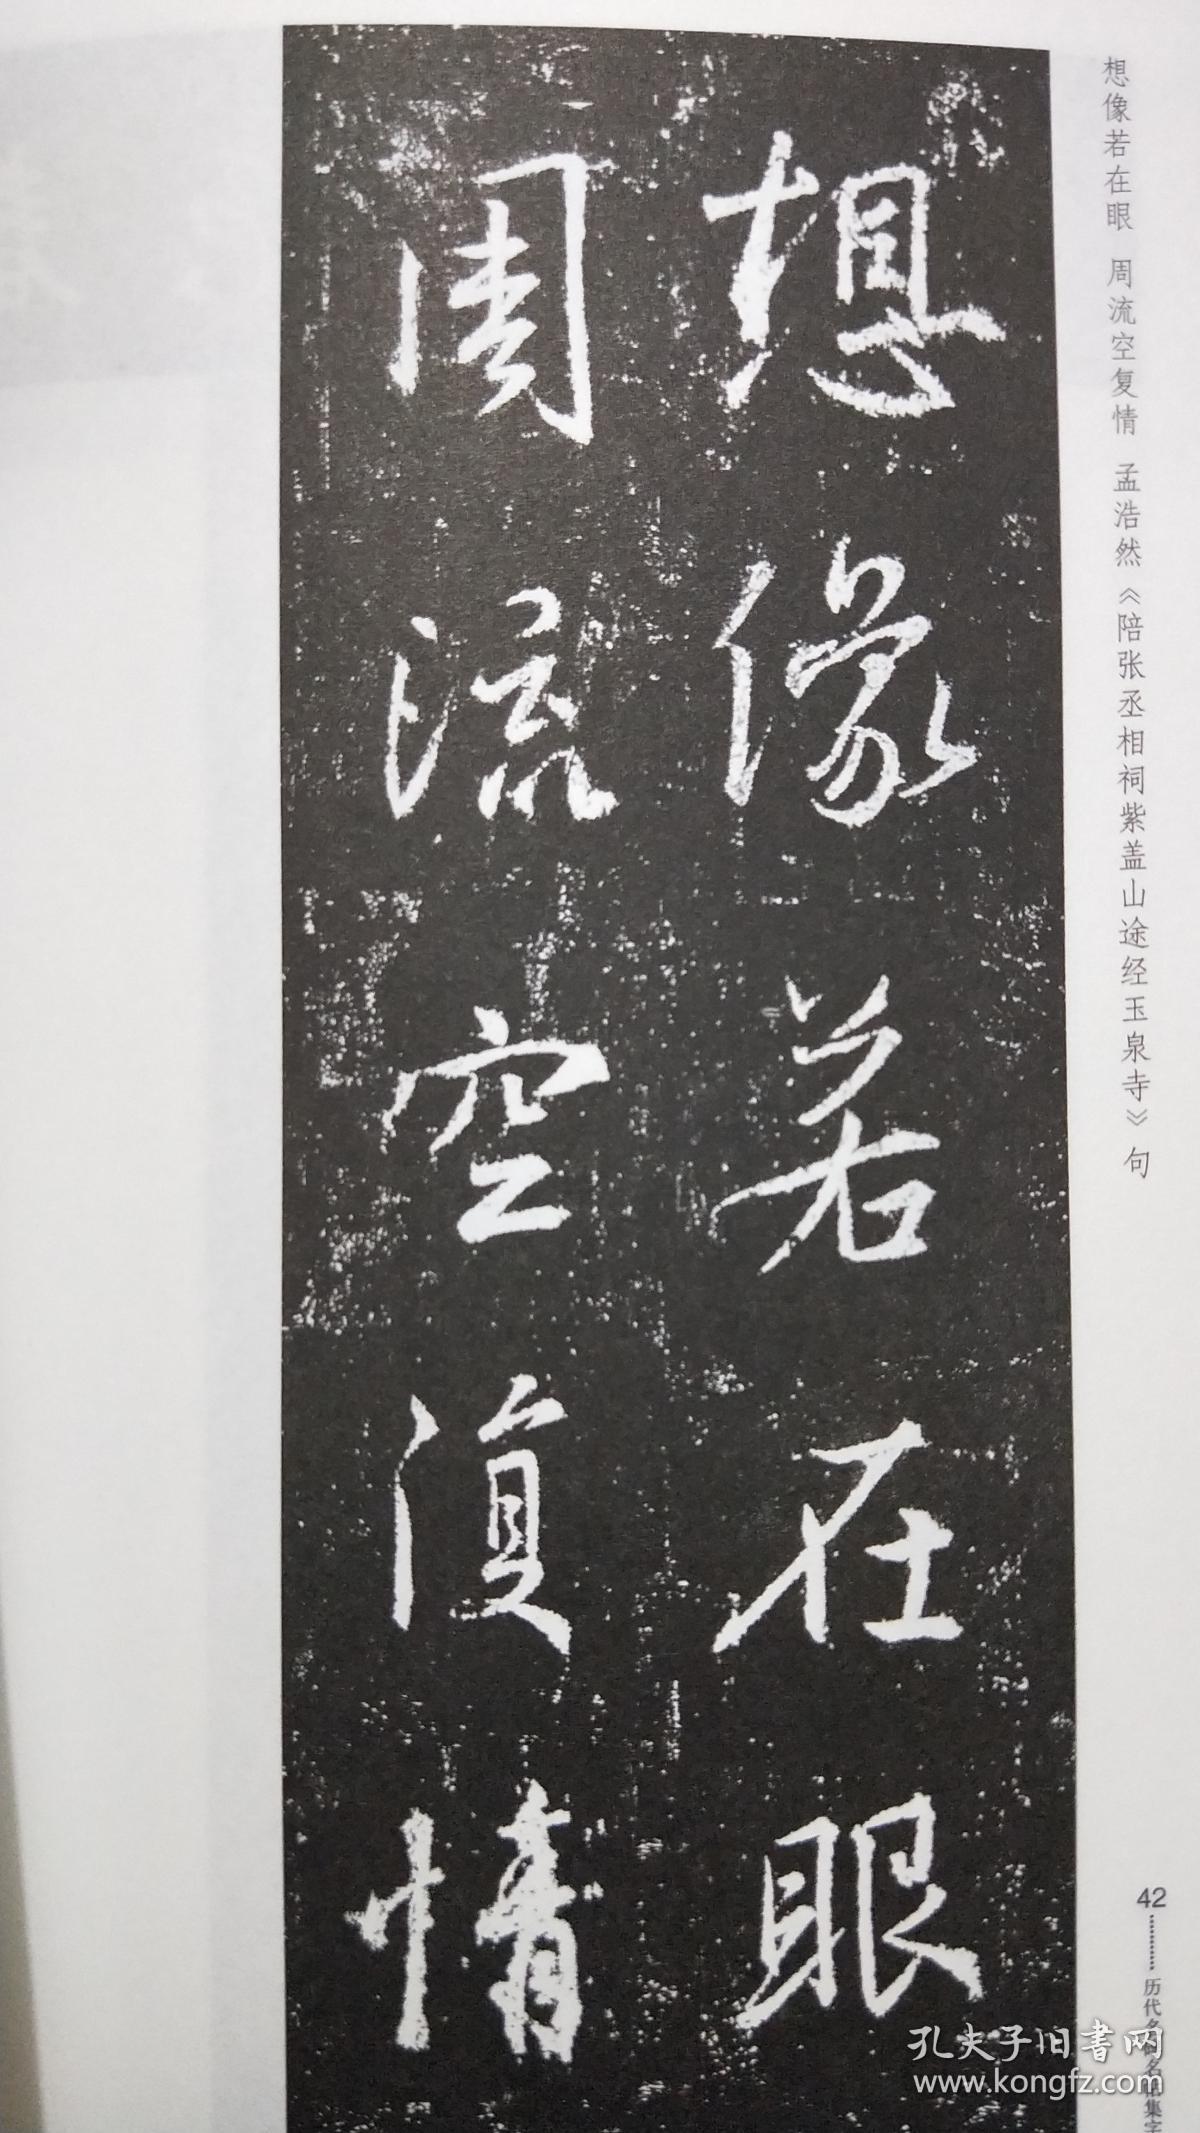 想像若在眼 周流空复情 孟浩然《陪张丞相祠紫盖山途经玉泉寺》句
想像若在眼
周流空復情
42 历代名碑名帖集字
孔夫子旧书网
www.kongfz.com